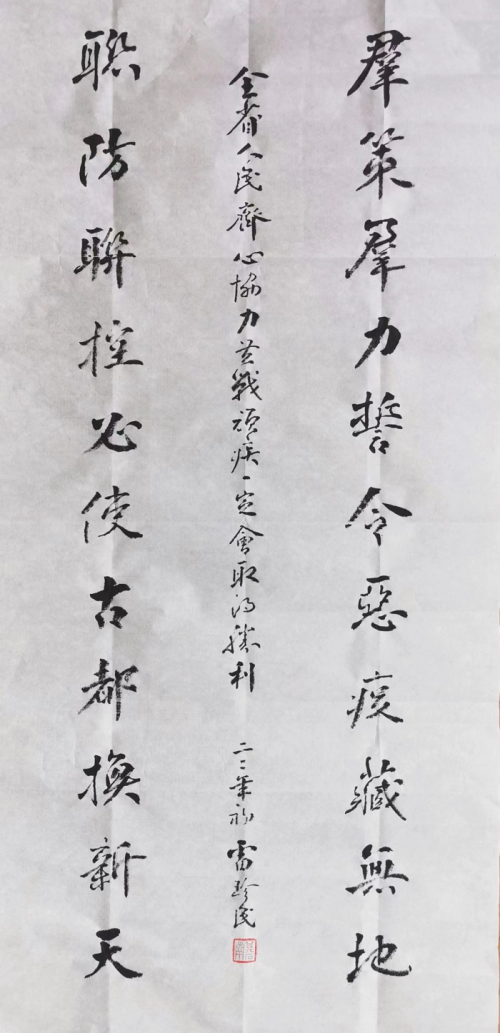 羣策羣力誓令惡疫藏無地
全省人民齊心協力共戰頑疾一定會取得勝利 二二年初 雷珍民
聯防聯控必使古都換新天